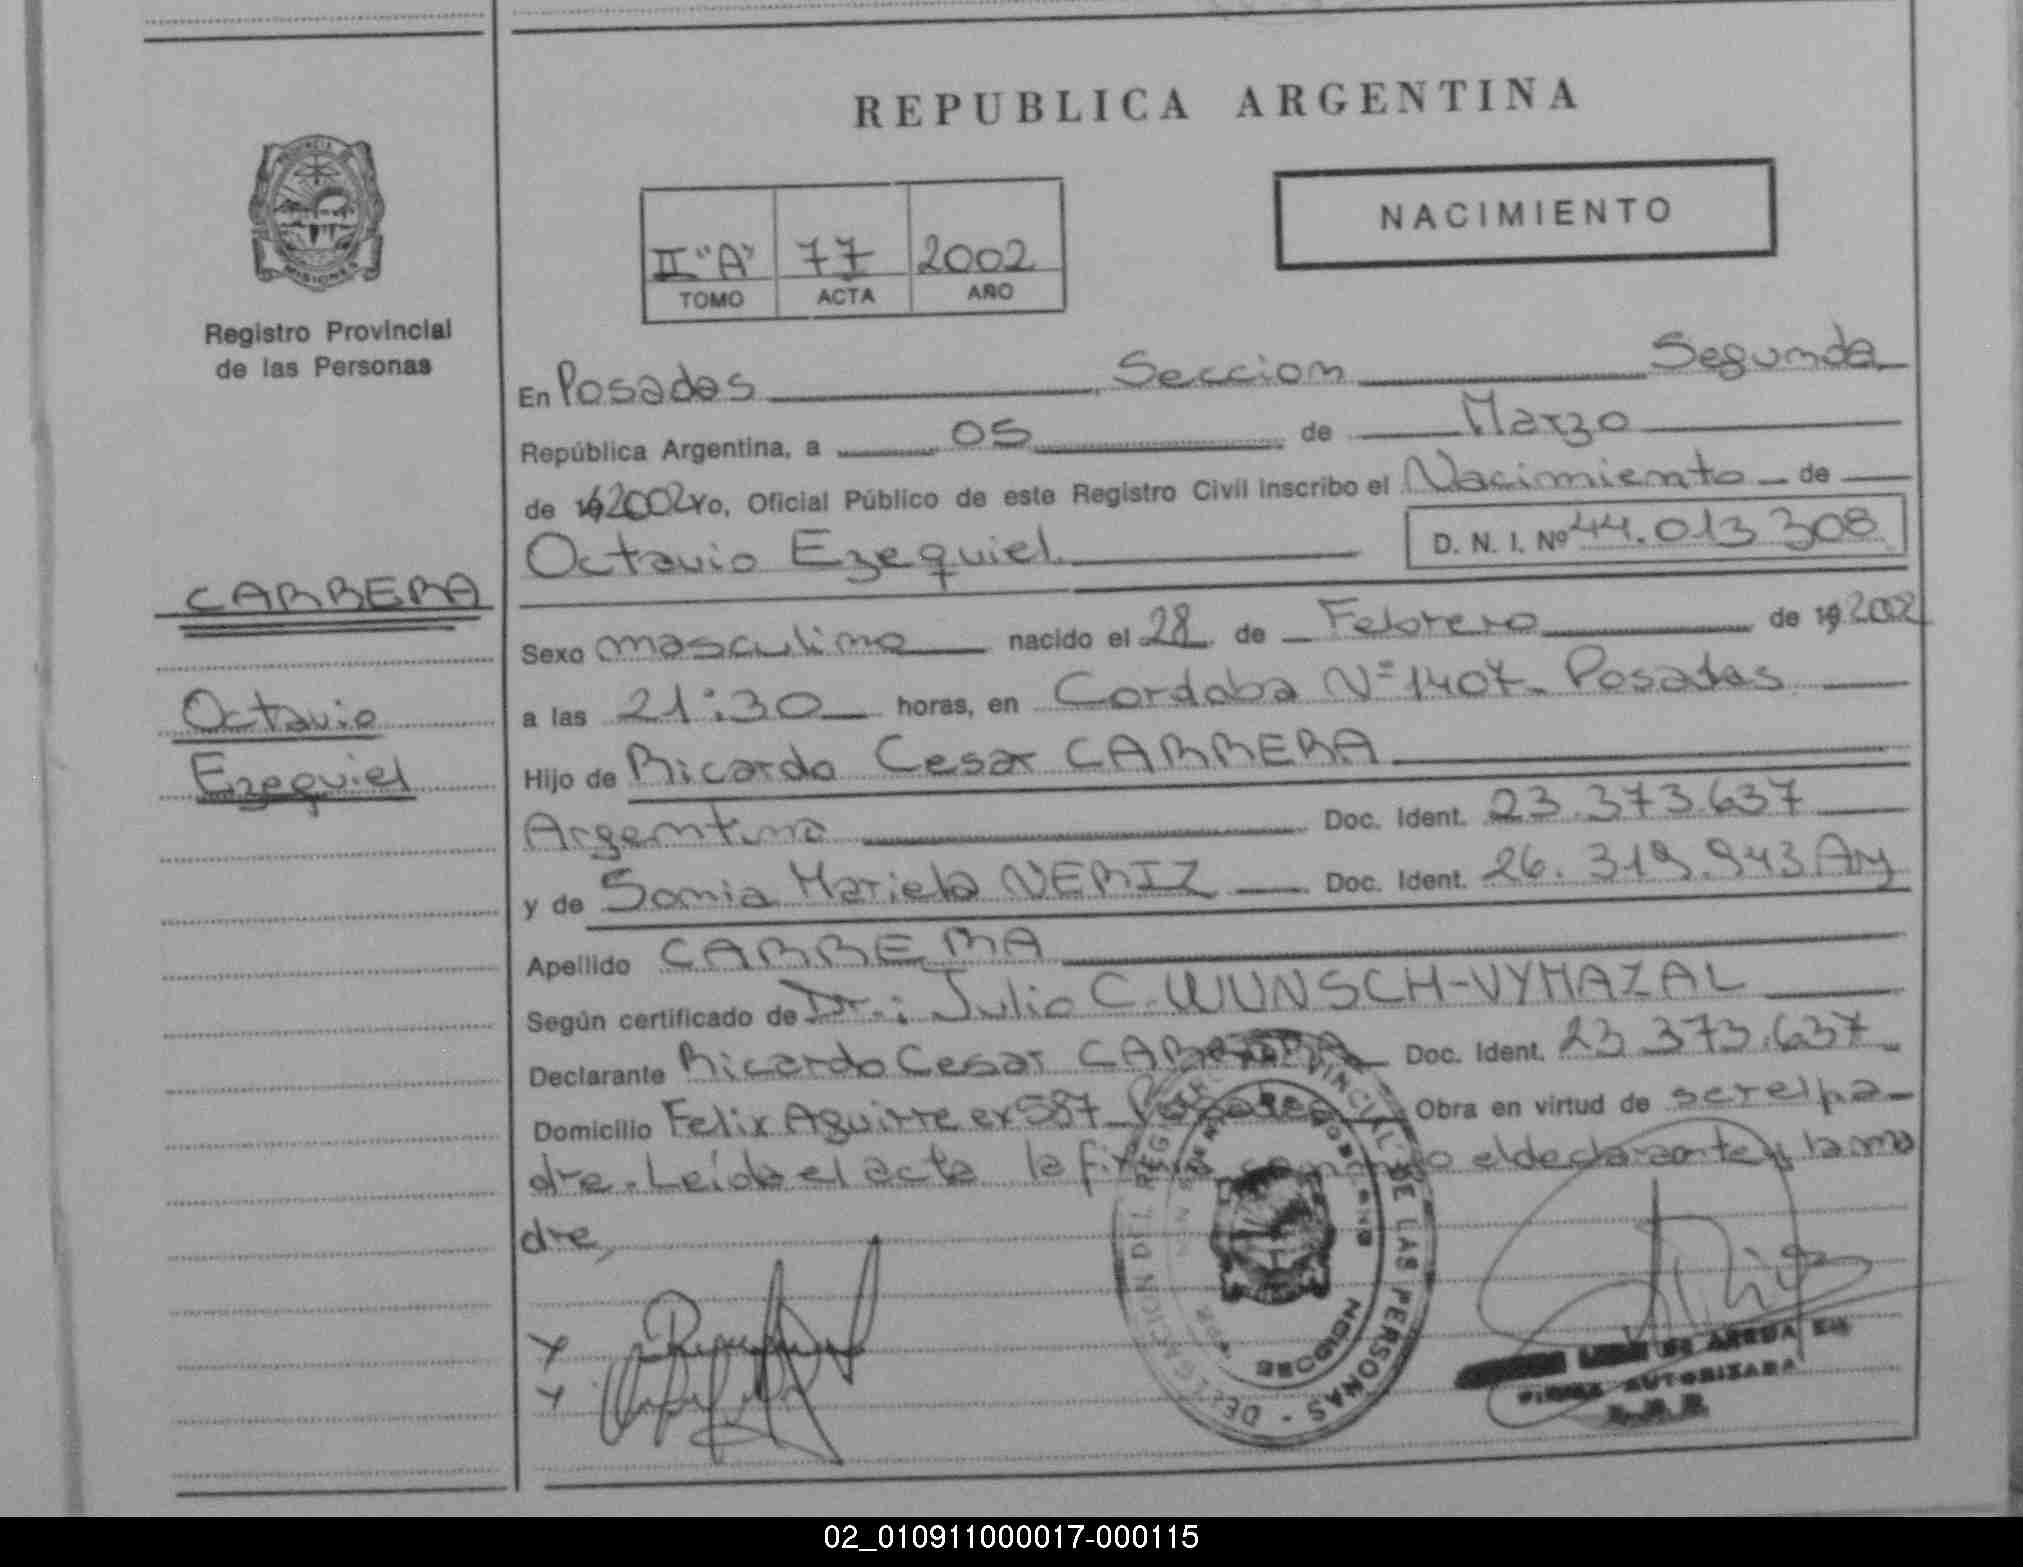 REPUBLICA ARGENTINA
PROVINCIA
MISIONES
Registro Provincial
de las Personas
II "A" 77 2002
TOMO ACTA AÑO
NACIMIENTO
En Posadas, Seccion Segunda
República Argentina, a 05 de Marzo
de 19 2002 Yo, Oficial Público de este Registro Civil inscribo el Nacimiento de
Octavio Ezequiel D. N. I. Nº 44.013 308
CARRERA
Octavio
Ezequiel
Sexo masculino nacido el 28 de Febrero de 19 2002
a las 21:30 horas, en Cordoba Nº 1407 - Posadas
Hijo de Ricardo Cesar CARRERA
Argentino Doc. Ident. 23.373.637
y de Sonia Mariela NERIZ Doc. Ident. 26.319.943 Arg
Apellido CARRERA
Según certificado de Dr.: Julio C. WUNSCH-VYMAZAL
Declarante Ricardo Cesar CARRERA Doc. Ident. 23 373.637
Domicilio Felix Aguirre ex 587 Posadas Obra en virtud de ser el pa-
dre. Leida el acta la firma conmigo el declarante y la ma
dre,
DELEGACION DEL REGISTRO PROVINCIAL DE LAS PERSONAS
MISIONES
FIRMA AUTORIZADA
02_010911000017-000115